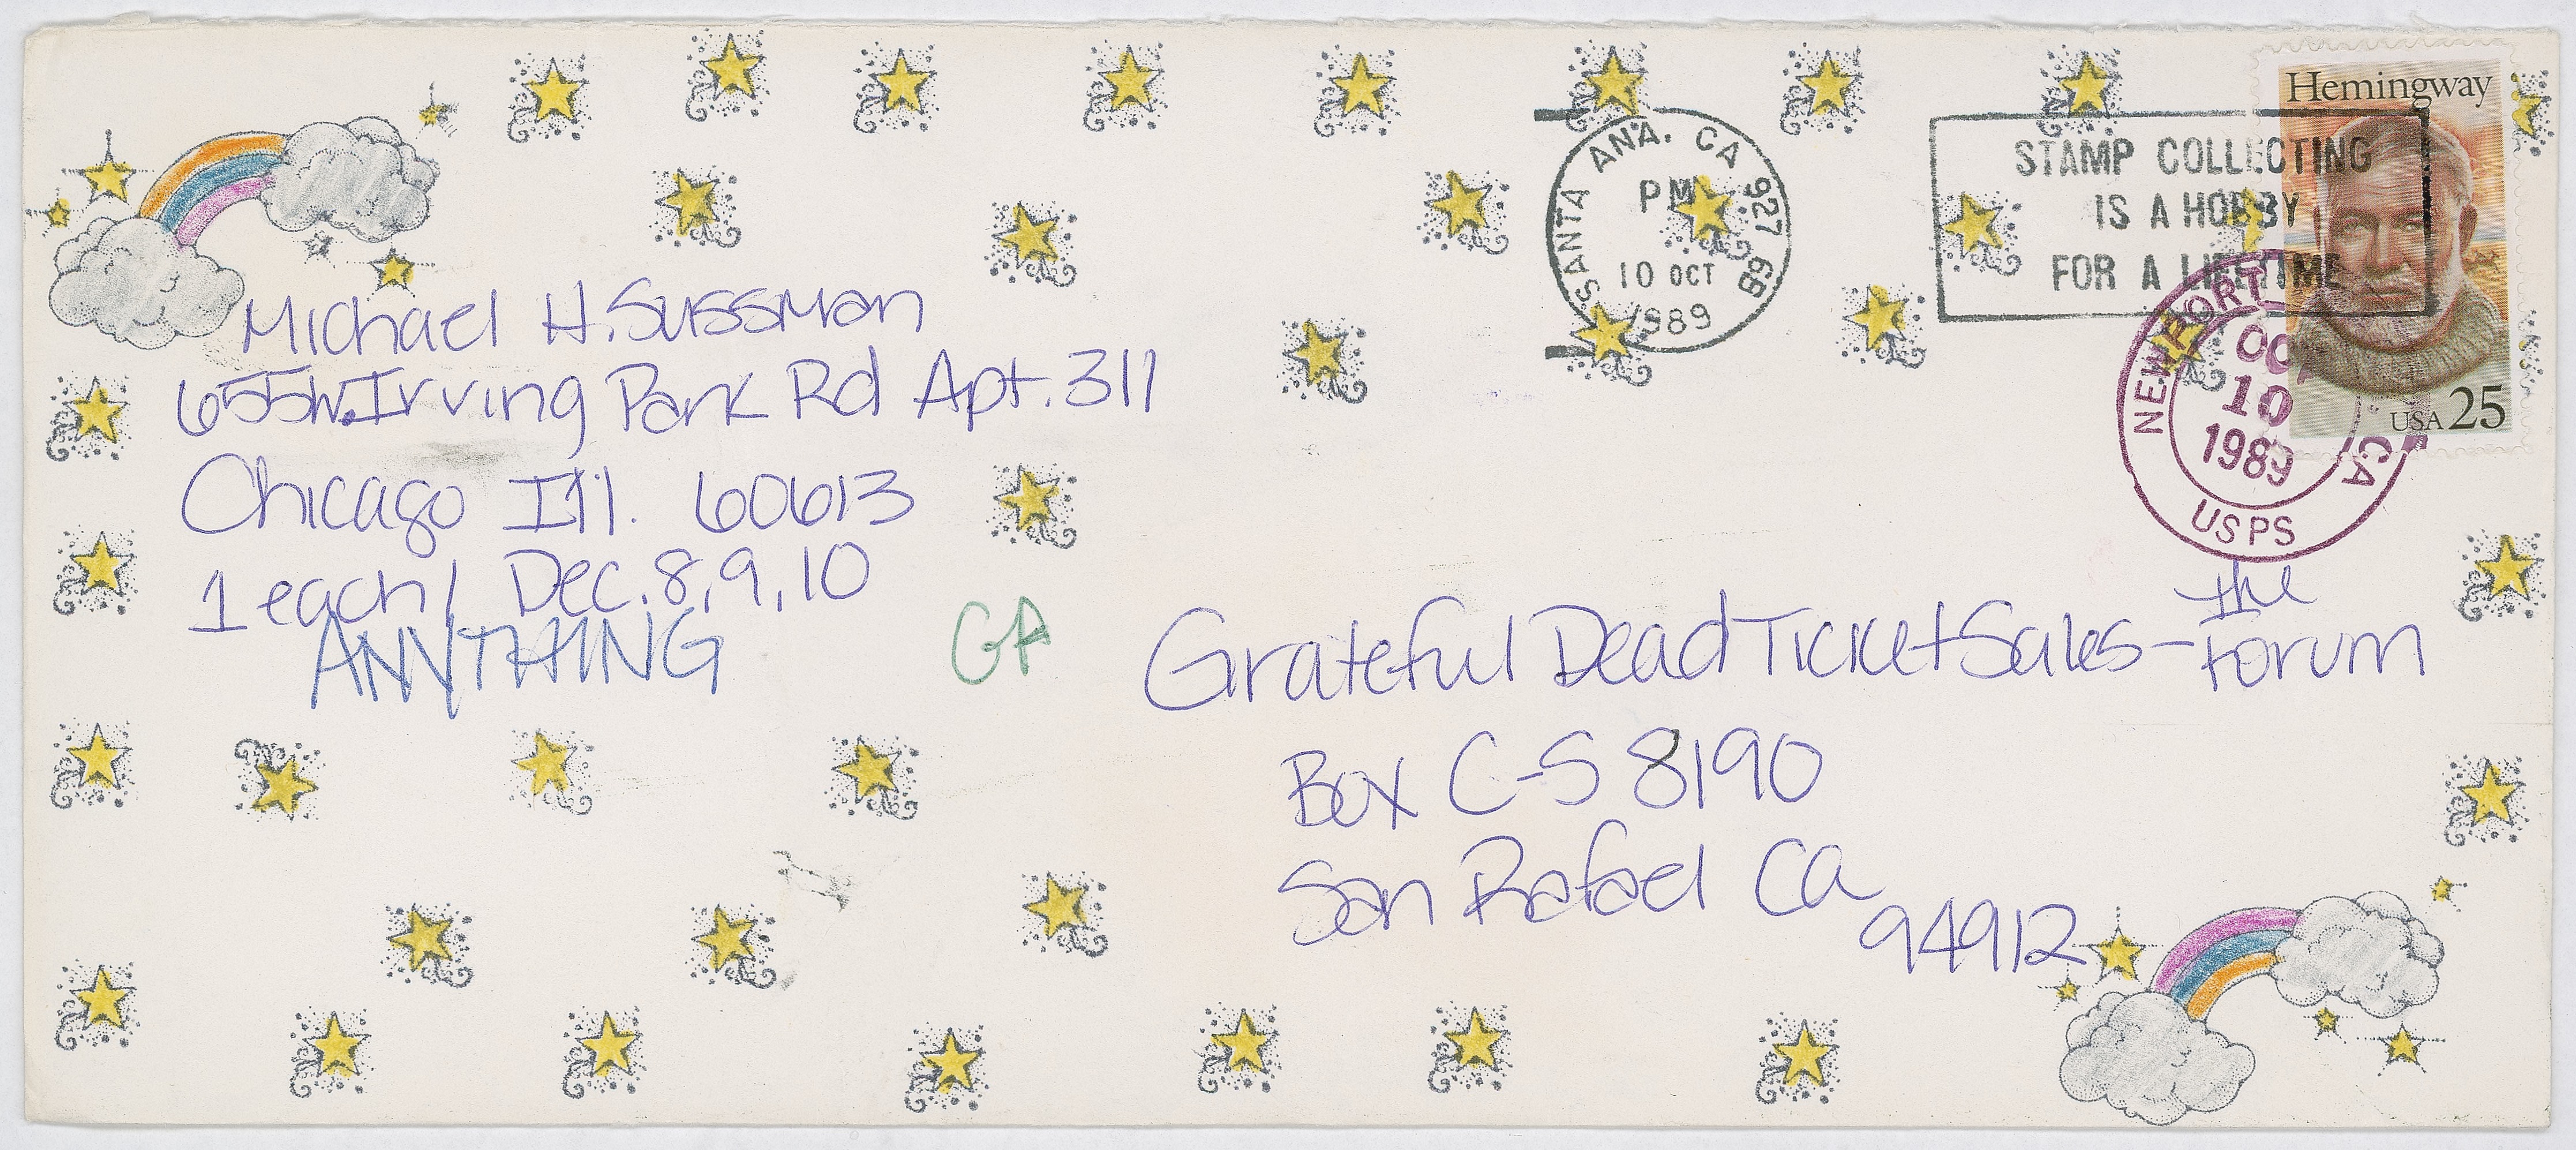 Michael H. Sussman
655 W. Irving Park Rd Apt. 311
Chicago Ill. 60613
1 each / Dec. 8, 9, 10
ANYTHING
GA
SANTA ANA. CA 927 89
PM
10 OCT
1989
STAMP COLLECTING
IS A HOBBY
FOR A LIFETIME
Hemingway
USA 25
NEWPORT CA
OCT
10
1989
USPS
Grateful Dead Ticket Sales - the Forum
Box C-S 8190
San Rafael Ca
94912